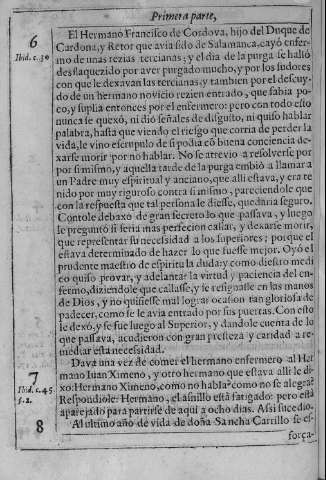 Primera parte,
6
Ibid. c. 30
El Hermano Francisco de Cordova, hijo del Duque de
Cardona, y Retor que avia sido de Salamanca, cayó enfer-
mo de unas rezias tercianas; y el dia de la purga se halló
desflaquezido por aver purgado mucho, y por los sudores
con que le dexavan las tercianas, y tambien por el descuy-
do de un hermano novicio rezien entrado, que sabia po-
co, y suplia entonces por el enfermero: pero con todo esto
nunca se quexó, ni dió señales de disgusto, ni quiso hablar
palabra, hasta que viendo el riesgo que corria de perder la
vida, le vino escrupulo de si podia có buena conciencia de-
xarse morir por no hablar. No se atrevio a resolverse por
por si mismo, y aquella tarde de la purga embió a llamar a
un Padre muy espiritual y anciano, que alli estava, y era te
nido por muy riguroso contra si mismo, pareciendole que
con la respuesta que tal persona le diesse, quedaria seguro.
Contole debaxo de gran secreto lo que passava, y luego
le preguntó si seria mas perfecion callar, y dexarse morir,
que representar su necesidad a los superiores; porque el
estava determinado de hazer lo que fuesse mejor. Oyó el
prudente maestro de espiritu la duda; y como diestro medi
co quiso provar, y adelantar la virtud y paciencia del en-
fermo, diziendole que callasse, y se resignasse en las manos
de Dios, y no quisiesse mal lograr ocasion tan gloriosa de
padecer, como se le avia entrado por sus puertas. Con esto
le dexó, y se fue luego al Superior, y dandole cuenta de lo
que passava, acudieron con gran presteza y caridad a re-
mediar esta necesidad.
7
Ibid. c. 45.
s. 2.
Dava una vez de comer el hermano enfermero al Her
mano Iuan Ximeno, y otro hermano que estava alli le di-
xo: Hermano Ximeno, como no habla? como no se alegra?
Respondiole: Hermano, el asnillo està fatigado: pero està
aparejado para partirse de aqui a ocho dias. Assi sucedio.
8
Al ultimo año de vida de doña Sancha Carrillo se es-
força-